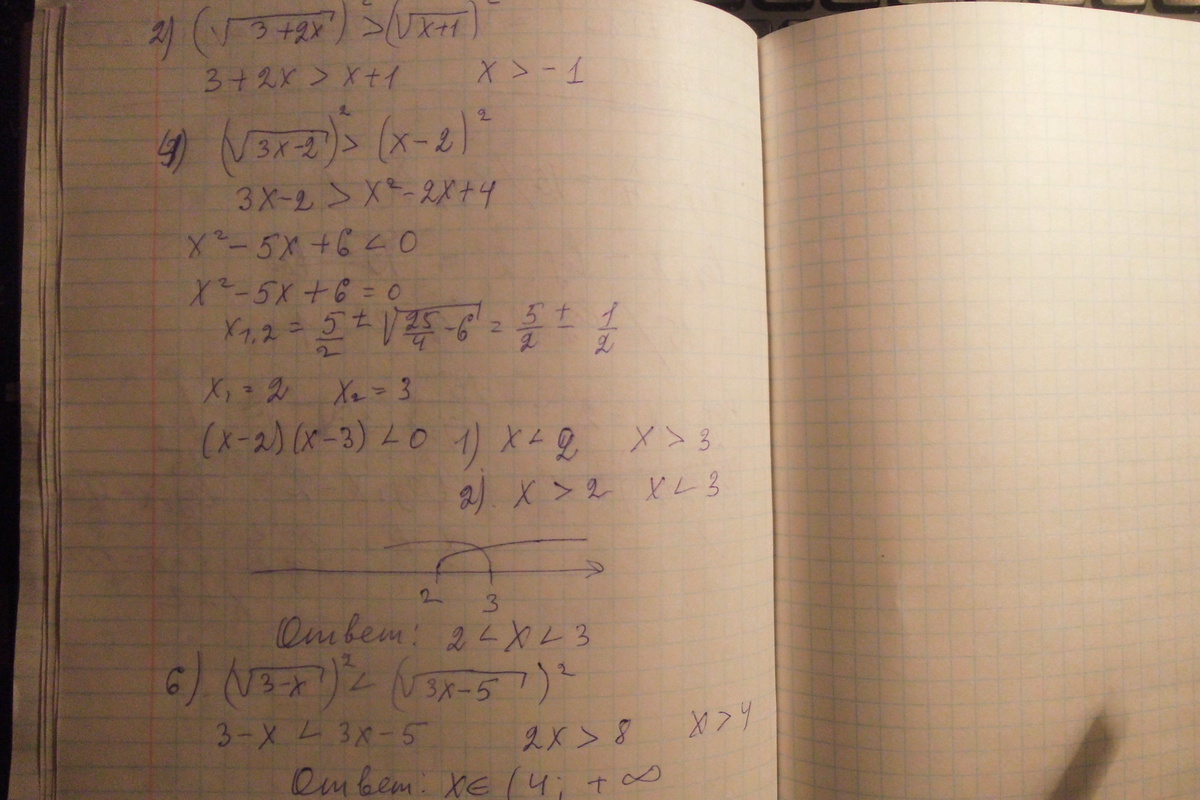 2) (√3+2x)² > (√x+1)²
3+2x > x+1 x > -1
4) (√3x-2)² > (x-2)²
3x-2 > x²-2x+4
x²-5x+6 < 0
x²-5x+6 = 0
x₁,₂ = 5/2 ± √25/4-6 = 5/2 ± 1/2
x₁ = 2 x₂ = 3
(x-2)(x-3) < 0 1) x < 2 x > 3
2). x > 2 x < 3
2 3
Ответ: 2 < x < 3
6). (√3-x)² < (√3x-5)²
3-x < 3x-5 2x > 8 x > 4
Ответ: x ∈ (4; +∞